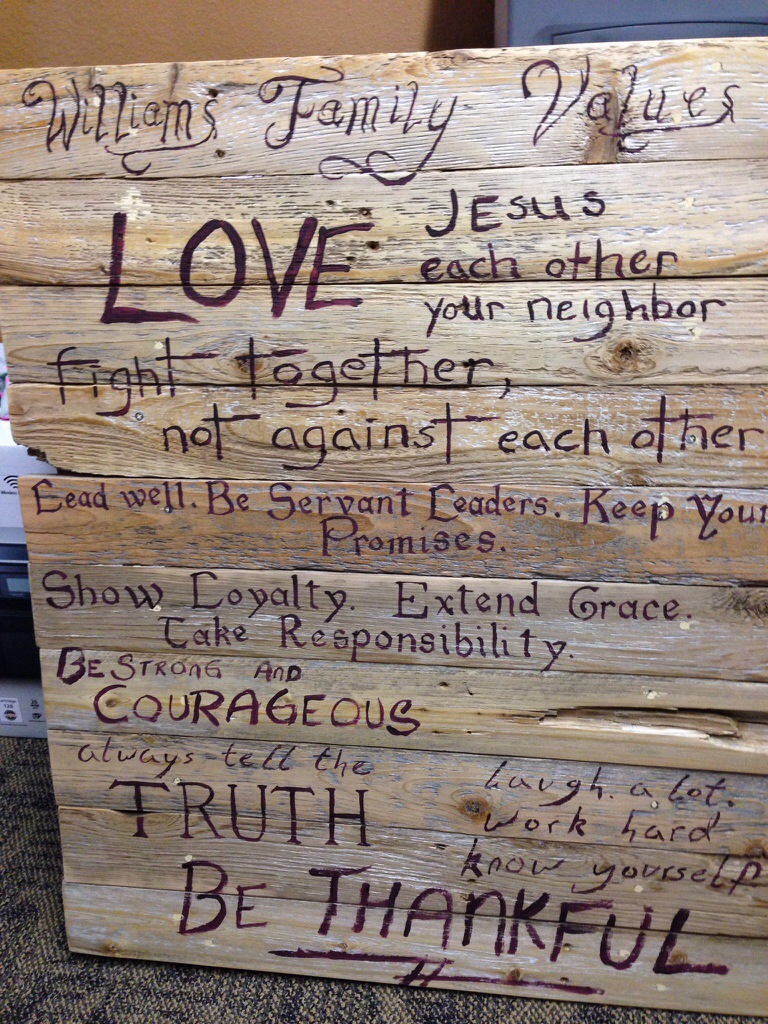 Williams Family Values
LOVE
JESUS
each other
your neighbor
fight together,
not against each other
Lead well. Be Servant Leaders. Keep Your
Promises.
Show Loyalty. Extend Grace.
Take Responsibility.
BE STRONG AND
COURAGEOUS
always tell the
TRUTH
Laugh. a lot.
work hard
know yourself
BE THANKFUL